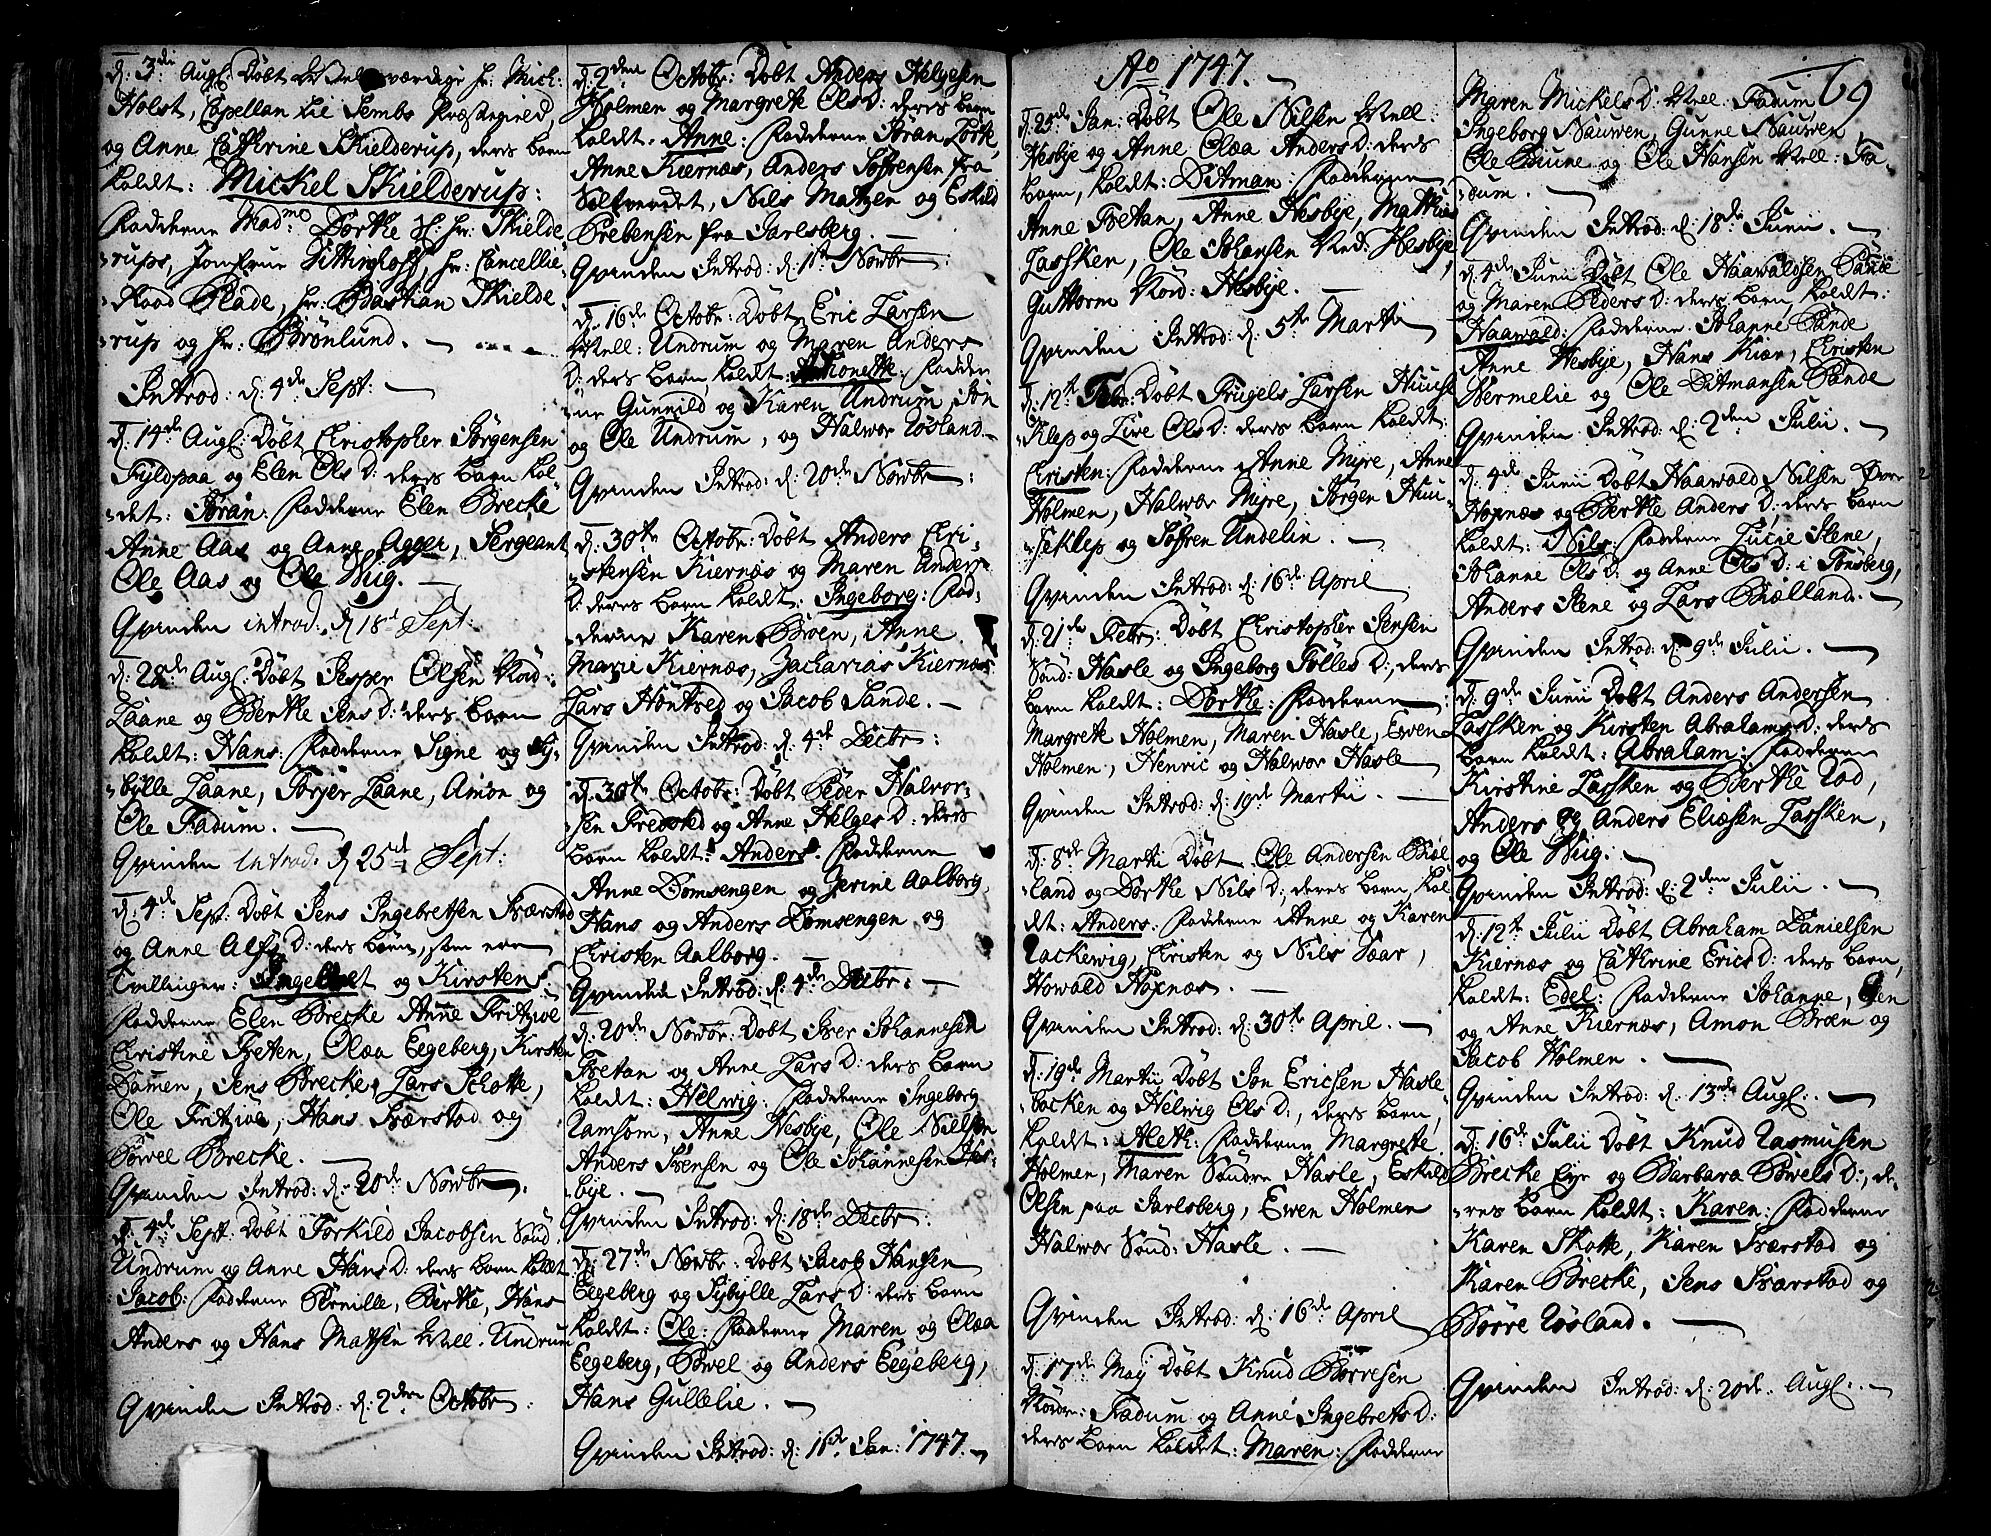 d: 3die Augs: Døbt velærværdige hr: Mich:
Holst, Capellan til Sembs Præstegield,
og Anne Cathrine Skielderup, deres barn
kaldt: Mickel Skielderup:
Fadderne Mad:me Dorthe Sl: hr: Skielde
rups, Jomfrue Vittinghoff, hr: Cancellie
Raad Blade, hr: Bastian Skielde
rup og hr: Brønlund. —
Introd: d: 4de Sept: —
d: 14de Augs: Døbt Christopher Jørgensen
Fyldpaa og Elen Ols D: deres barn kal-
det: Jøran: Fadderne Elen Brecke
Anne Aas og Anne Agger, Sergeant
Ole Aas og Ole Wiig. —
Qvinden introd: d 18d Sept:
d: 28de Augs: Døbt Jesper Olsen Nord:
Laane og Berthe Jens D: deres barn
kaldt: Hans: Fadderne Signe og Sy-
bylle Laane, Torjer Laane, Amon og
Ole Fadum. —
Qvinden introd. d 25d Sept:
d: 4de Sept: Døbt Jens Ingebretsen Sværstad
og Anne Alfs D: deres børn, som ere
tvillinger: Ingebret og Kirsten:
Fadderne Elen Brecke Anne Fritzøe
Christine Freten, Olæa Eegeberg, Kirsten
Dammen, Jens Brecke, Lars Schotte,
Ole Fritzøe, Hans Sværstad og
Børvel Brecke. —
Qvinden Introd: d: 20de Novbr:
d: 4de Sept: Døbt Torkild Jacobsen Sønd.
Undrum og Anne Hans D: deres barn kaldt
Jacob: Fadderne Pernille, Berthe, Hans
Anders og Hans Matsen Mell. Undrum
Qvinden Introd: d: 2den Octobr:
d: 9den Octobr: Døbt Anders Helgesen
Holmen og Margrete Ols D: deres barn
kaldt. Anne: Fadderne Jøran Torke,
Anne Kiernæs, Anders Søffrensen fra
Saltverdet, Nils Matzen og Eskild
Prebensen fra Jarlsberg. —
Qvinden Introd: d: 11te Novbr:
d: 16de Octobr: Døbt Eric Larsen
Mell: Undrum og Maren Anders
D: deres barn kaldt Anthonette: Fadder
ne Gunnild og Karen Undrum, Jon
og Ole Undrum, og Halwor Røsland —
Qvinden Introd: d: 20de Novbr:
d: 30te Octobr: Døbt Anders Chri-
stensen Kiernæs og Maren Anders
D: deres barn kaldt: Ingeborg: Fad-
derne Karen Broen, Anne
Marie Kiernæs, Zacharias Kiernæs
Lars Hontved og Jacob Sande. —
Qvinden Introd: d: 4de Decbr:
d: 30te Octobr: Døbt Peder Halvor-
sen Tredsted og Anne Helges D: deres
barn kaldt: Anders. Fadderne
Anne Domsengen og Gerine Aalborg,
Hans og Anders Domsengen og
Christen Aalborg. —
Qvinden Introd: d: 4de Decbr: —
d: 20de Novbr: Døbt Iver Johannesen
Fretan og Anne Lars D: deres barn
kaldt: Helwig: Fadderne Ingeborg
Ramsom, Anne Hesbye, Ole Nielsen
Anders Svensen og Ole Johannesen Hes-
bye. —
Qvinden Introd: d: 18de Decbr:
d: 27de Novbr: Døbt Jacob Hansen
Eegeberg og Sybylle Lars D: deres barn
kaldt: Ole: Fadderne Maren og Olæa
Eegeberg, Børvel og Anders Eegeberg,
Hans Gullelie. —
Qvinden Introd: d: 11te Jan: 1747. —
Ao 1747. — 69
d: 25de Jan: Døbt Ole Nilsen Mell:
Hesbye og Anne Olæa Anders D: deres
barn, kaldt: Ditman: Fadderne
Anne Fretan, Anne Hesbye, Mathias
Lassken, Ole Johansen Ned: Hesbye,
Guttorm Nord: Hesbye.
Qvinden Introd: d: 5te Martii
d: 12te Febr: Døbt Trugels Larsen Huuse
Klep og Live Ols D: deres barn kaldt:
Christen: Fadderne Anne Myre, Anne
Holmen, Halwor Myre, Jørgen Huu-
seklep og Søffren Undelin. —
Qvinden Introd: d: 16de April
d: 21de Febr: Døbt Christopher Jensen
Sønd: Hasle og Ingeborg Tølles D:, deres
barn kaldt: Dorthe: Fadderne
Margrete Holmen, Maren Hasle, Ewen
Holmen, Henric og Halwor Hasle
Qvinden Introd: d: 19de Martii. —
d: 8de Martii Døbt Ole Andersen Biøl-
land og Dorthe Nils D:, deres barn kal
dt: Anders. Fadderne Anne og Karen
Rackewig, Christen og Nils Faar,
Howald Hoxnæs. —
Qvinden Introd: d: 30te April. —
d: 19de Martii Døbt Jon Ericsen Hasle
backen og Helwig Ols D:, deres barn,
kaldt: Aleth: Fadderne Margrete
Holmen, Maren Søndre Hasle, Eskild
Olsen paa Jarlsberg, Ewen Holmen
Halwor Sønd: Hasle. —
Qvinden Introd: d: 16de April
d: 17de Maj Døbt Knud Børresen
Nordre: Fadum og Anne Ingebrets D:
deres barn kaldet: Maren: Fadderne
Maren Mickels D: Mell: Fadum
Ingeborg Nauwen, Gunne Nauwen
Ole Brune og Ole Hansen Mell: Fa-
dum. —
Qvinden Introd: d: 18de Junii. —
d: 4de Junii Døbt Ole Haawaldsen Sande
og Maren Peders D: deres barn, kaldt:
Haawald: Fadderne Johanne Sande
Anne Hesbye, Hans Kiær, Christen
Vermelie og Ole Ditmansen Sande
Qvinden Introd: d: 2den Julii. —
d: 4de Junii Døbt Haawald Nilsen Øvre
Hoxnæs og Berthe Anders D: deres barn
kaldt: Nils: Fadderne Lucie Ilene,
Johanne Ols D: og Anne Ols D: i Tønsberg,
Anders Ilene og Lars Biølland. —
Qvinden Introd: d: 9de Julii. —
d: 9de Junii Døbt Anders Andersen
Lassken og Kirsten Abrahams D: deres
barn kaldt: Abraham: Fadderne
Kirstine Lassken og Berthe Rød,
Anders og Anders Eliæsen Lassken,
og Ole Wiig. —
Qvinden Introd: d: 2den Julii. —
d: 12te Julii Døbt Abraham Danielsen
Kiernæs og Cathrine Erics D: deres barn,
kaldt: Edel: Fadderne Johanne, Elen
og Anne Kiernæs, Amon Broen og
Jacob Holmen. —
Qvinden Introd: d: 13de Augs. —
d: 16de Julii Døbt Knud Rasmusen
Brecke Eye og Barbara Børvels D:, de-
res barn kaldt: Karen: Fadderne
Karen Skotte, Karen Sværstad og
Karen Brecke, Jens Sværstad og
Børre Røsland. —
Qvinden Introd: d: 20de. Augs. —